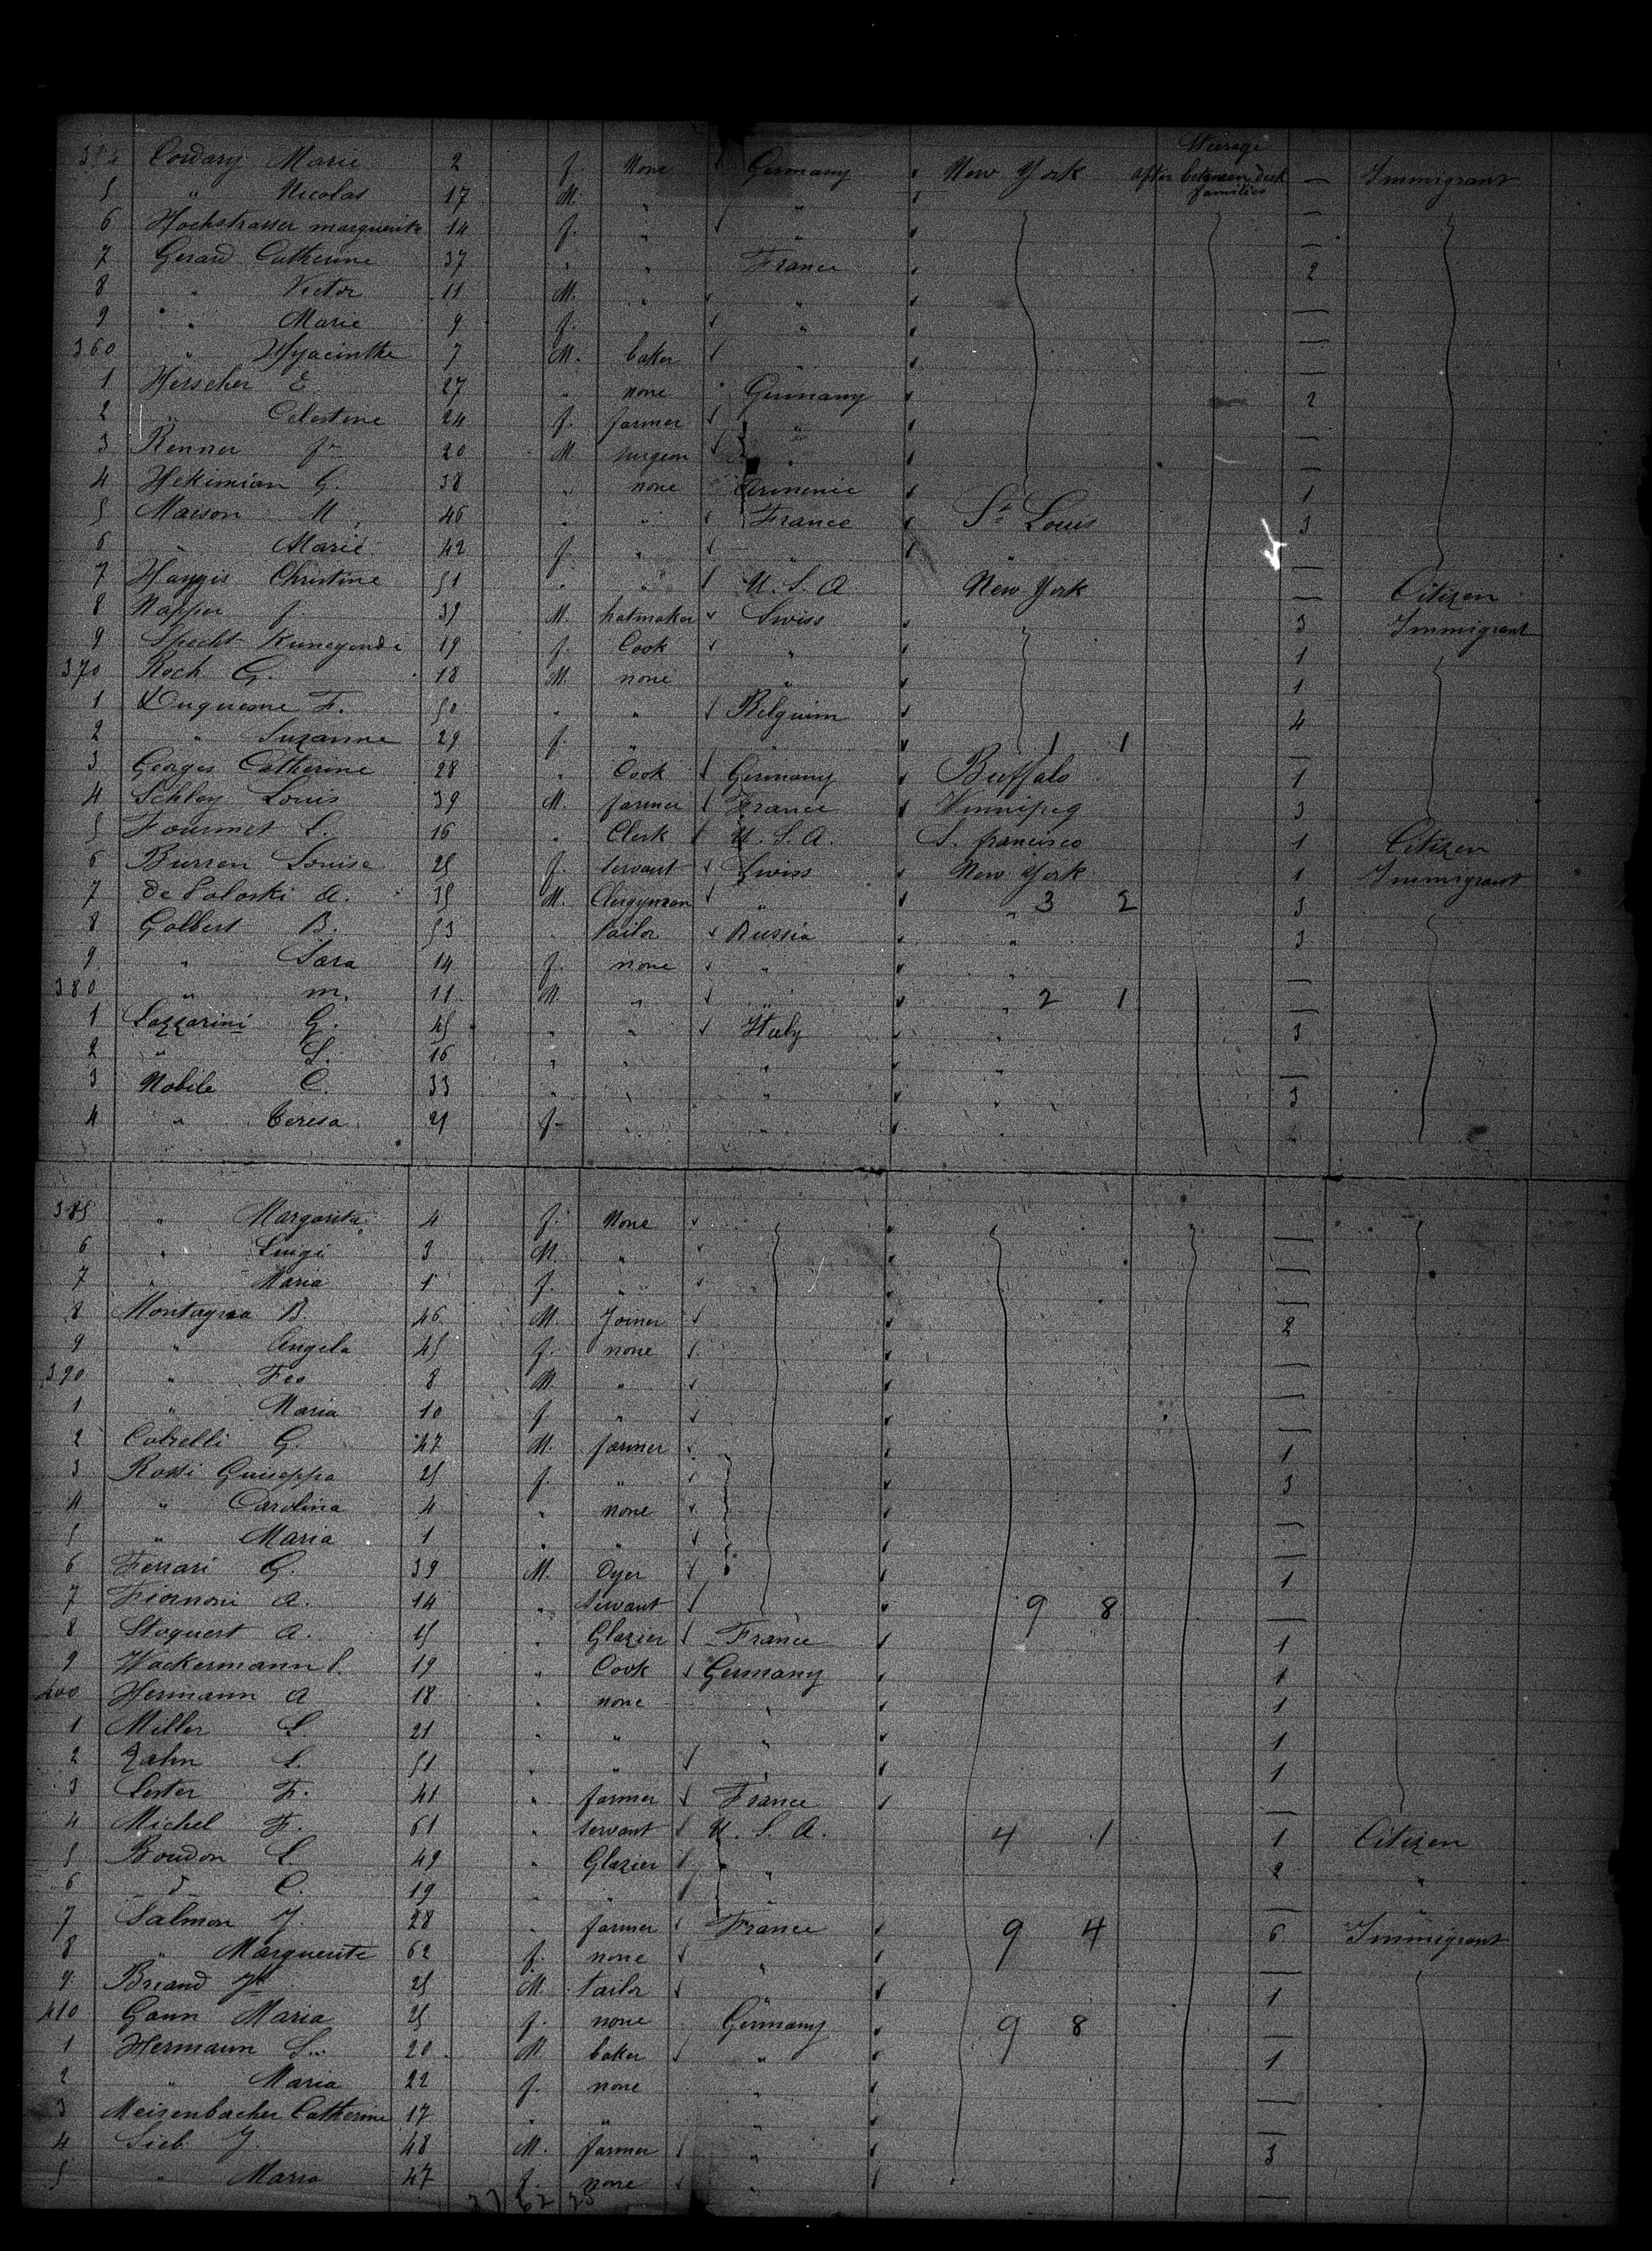 Steerage
354 Cordary Marie 2 f. None Germany New York after between deck families — Immigrant
5 " Nicolas 17 M. " " —
6 Hochstrasser marguerite 14 f. " " —
7 Gerard Catherine 37 " " France 2
8 " Victor 11 M. " " —
9 " Marie 9 f. " " —
360 " Hyacinthe 7 M. baker —
1 Herscher E. 27 " none Germany 2
2 " Celestine 24 f. farmer " —
3 Renner Jn 20 M. surgeon " —
4 Hekimian G. 38 " none Armenie 1
5 Marson M. 46 " " France St Louis 3
6 " Marie 42 f. " " " —
7 Hangis Christine 51 " " U. S. A. New York — Citizen
8 Napper J. 39 M. hatmaker Swiss 3 Immigrant
9 Specht Kunegonde 19 f. Cook " 1
370 Koch G. 18 M. none " 1
1 Duquesne F. 50 " " Belguim 4
2 " Suzanne 29 f. " " 1 1 —
3 Georges Catherine 28 " Cook Germany Buffalo 1
4 Schley Louis 39 M. farmer France Winnipeg 3
5 Fourmet L. 16 " Clerk U. S. A. S. francisco 1 Citizen
6 Burren Louise 25 f. servant Swiss New York 1 Immigrant
7 de Soloski A. 35 M. Clergyman " " 3 2 3
8 Golbert B. 53 " tailor Russia " 3
9 " Sara 14 f. none " " —
380 " m. 11 M. " " " 2 1 —
1 Lazzarini G. 45 " " Italy " 3
2 " L. 16 " " " " —
3 Nobile C. 33 " " " " 3
4 " Teresa 21 f. " "
385 " Margarita 4 f. None —
6 " Luigi 3 M. " —
7 " Maria 1 f. " —
8 Montagna B. 46 M. Joiner 2
9 " Angela 45 f. none —
390 " Feo 8 M. " —
1 " Maria 10 f. " —
2 Cotrelli G. 47 M. farmer 1
3 Rossi Guiseppa 25 f. " 3
4 " Carolina 4 " none —
5 " Maria 1 " " —
6 Ferrari G. 39 M. Dyer 1
7 Fiornoni A. 14 " Servant 9 8 —
8 Stoquert A. 15 " Glazier France 1
9 Wackermann L. 19 " Cook Germany 1
400 Hermann A 18 " none " 1
1 Miller L. 21 " " " 1
2 Zahn L. 51 " " " 1
3 Lester F. 41 " farmer France —
4 Michel F. 61 " servant U. S. A. 4 1 1 Citizen
5 Boudon L. 49 " Glazier " 2 "
6 d C. 19 " " " — "
7 Salmon J. 28 " farmer France 9 4 6 Immigrant
8 " Marguerite 62 f. none " —
9 Briand Jh 25 M. tailor " 1
410 Gann Maria 25 f. none Germany 9 8 —
1 Hermann L. 20 M baker " 1
2 " Maria 22 f. none " —
3 Meisenbacher Catherine 17 " " " —
4 Sieb J. 48 M. farmer " 3
5 " Maria 47 f. none " —
27 62 25